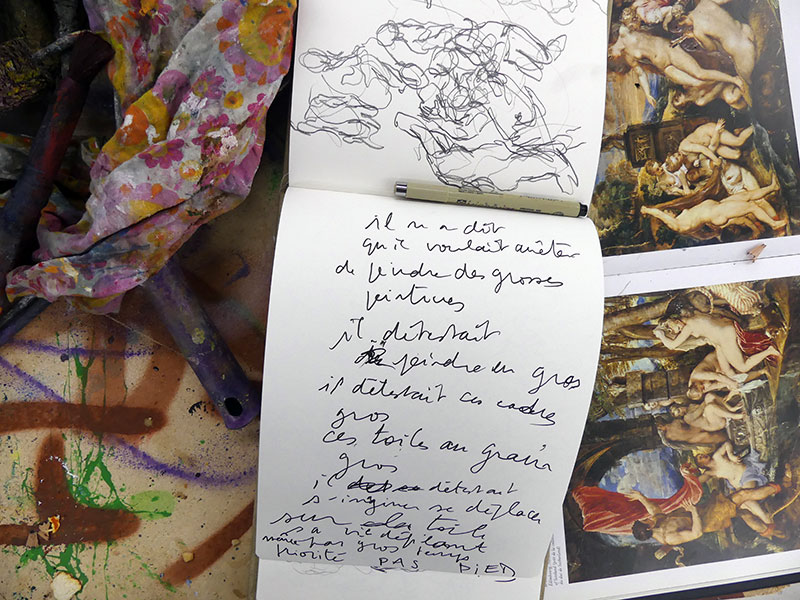 il m a dit
qu il voulait arrêter
de peindre des grosses
peintures
il détestait
peindre en gros
il détestait ces cadres
gros
ces toiles au grain
gros
il détestait
s'imaginer se déplacer
sur la toile
sa vie
gros temps
priorité PAS PIED